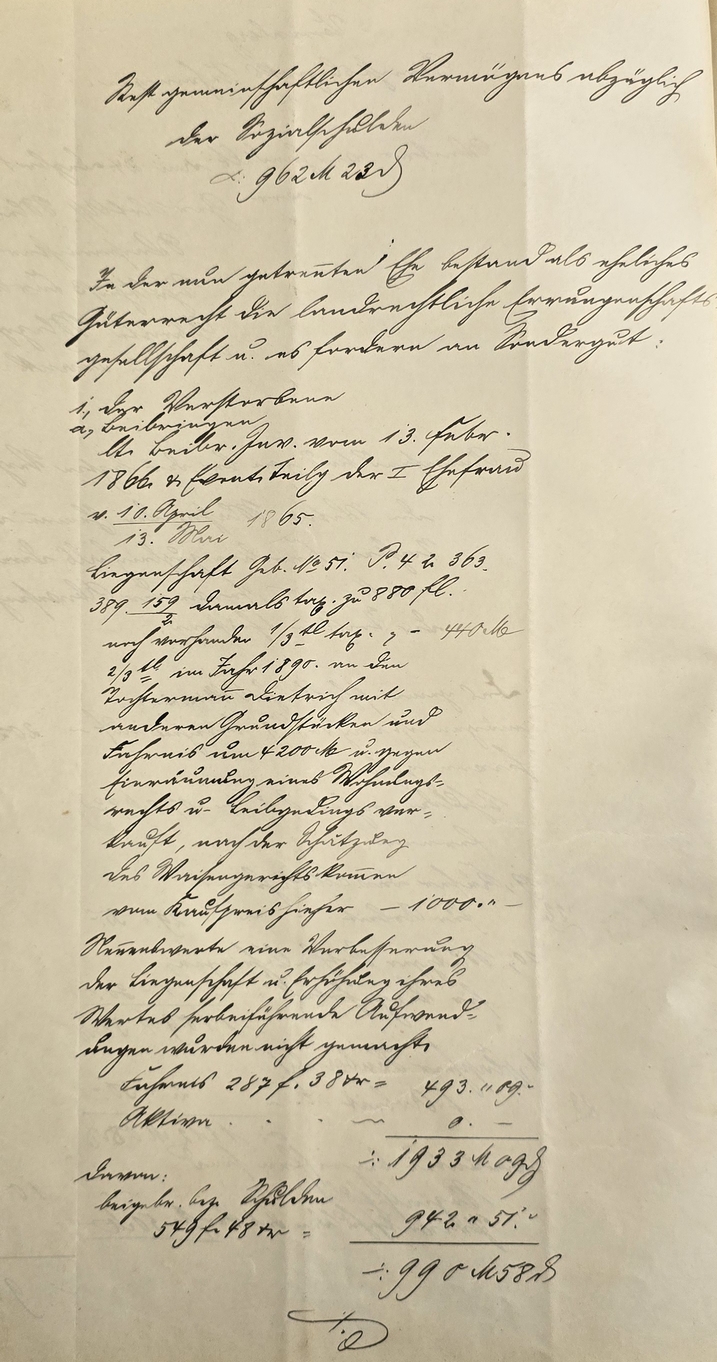 Rest gemeinschaftlichen Vermögens abzüglich
der Sozialschulden
∴ 962 M 23 ₰
In der nun getrennten Ehe bestand als eheliches
Güterrecht die landrechtliche Errungenschafts
gesellschaft u. es fordern an Sondergut:
1, der Verstorbene
a, Beibringen
lt. Beibr. Inv. vom 13. Febr.
1866. & Event. Teilg der I Ehefrau
v. 10. April
13. Mai 1865.
Liegenschaft Geb. No 51. P. 42 363.
389. 159/2 damals tax. zu 880 fl.
noch vorhanden 1/3tl tax. z - 440 M
2/3tl im Jahr 1890. an den
Tochtermann Dietrich mit
anderen Grundstücken und
Fahrnis um 4200 M u. gegen
Einräumung eines Wohnungs-
rechts u. Leibgedings ver-
kauft, nach der Schätzung
des Waisengerichts kommen
vom Kaufpreis hieher – 1000. " –
Nennenswerte eine Verbesserung
der Liegenschaft u. Erhöhung ihres
Wertes herbeiführende Aufwend-
ungen wurden nicht gemacht.
Fahrnis 287 f. 38 kr = 493. " 09.
Aktiva . . . 0. –
∴ 1933 M 09 ₰
davon:
beigebr. bez. Schulden
549 f. 48 kr = 942 " 51.
∴ 990 M 58 ₰